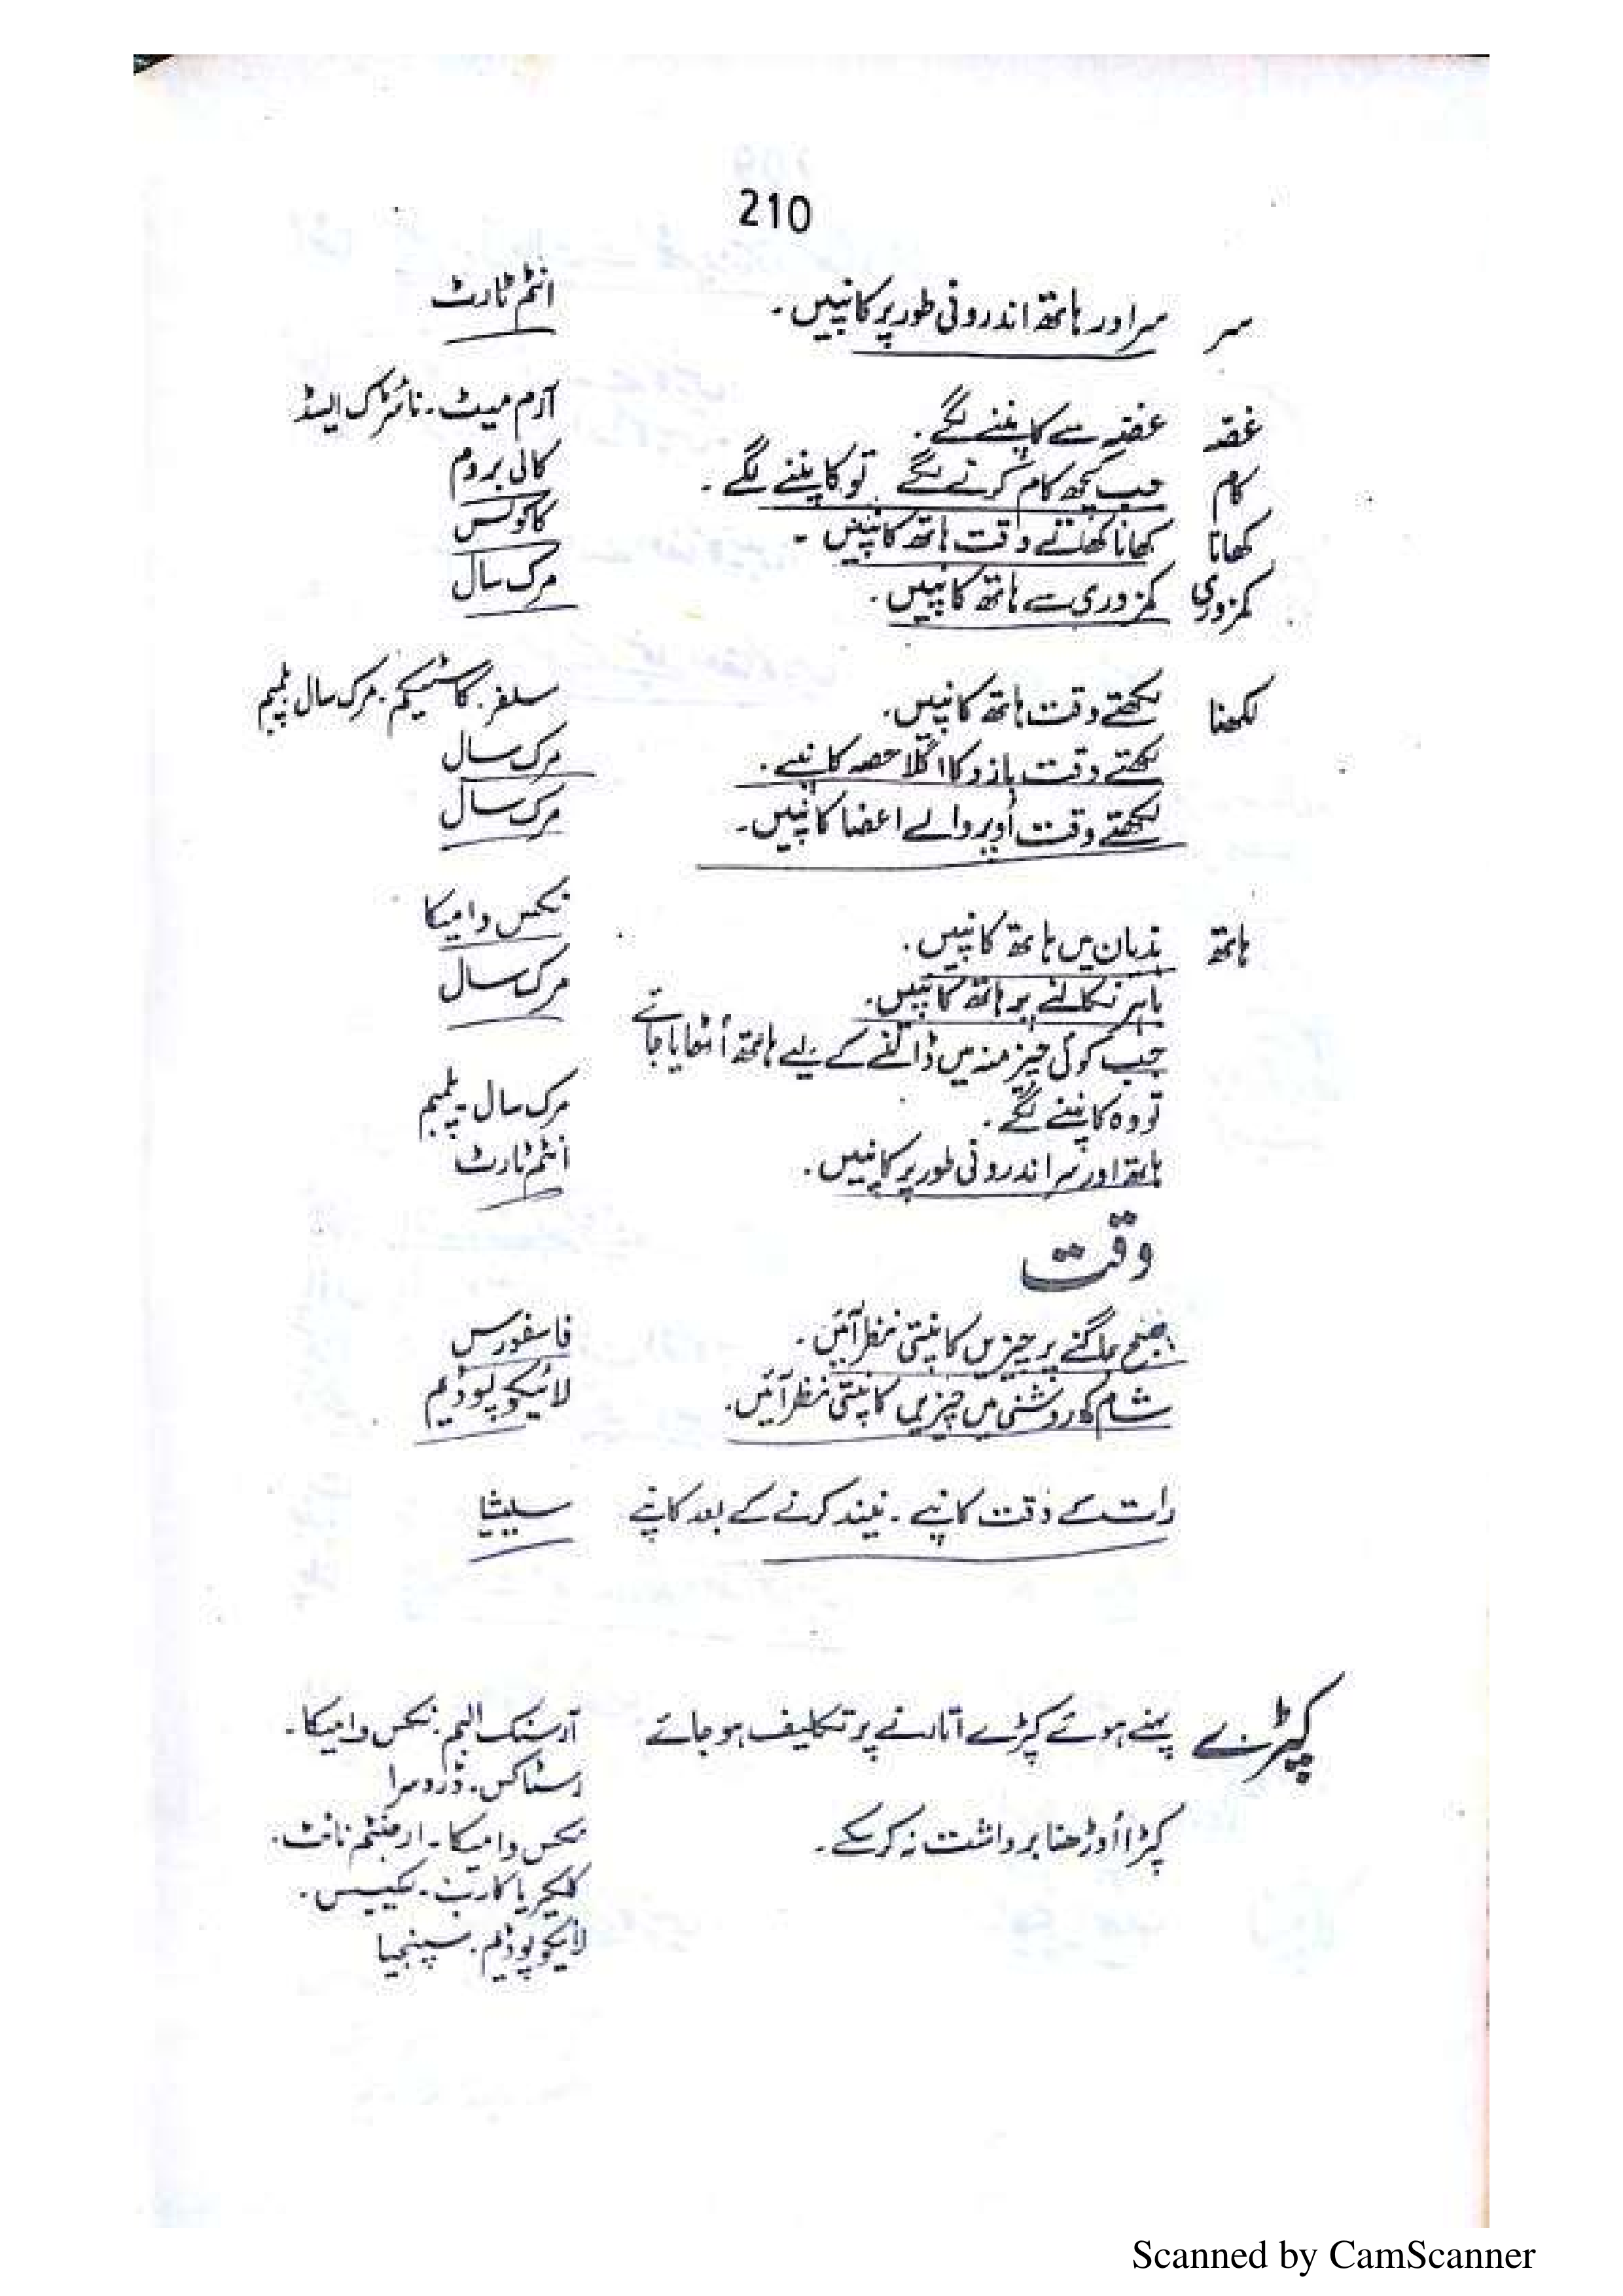 210
سر سر اور ہاتھ اندرونی طور پر کانپیں۔ انٹم ٹارٹ
غصہ غصہ سے کانپنے لگے۔ آرم میٹ۔ نائٹرک ایسڈ
کام جب کچھ کام کرنے لگے تو کانپنے لگے۔ کالی بروم
کھانا کھانا کھاتے وقت ہاتھ کانپیں۔ کاکولس
کمزوری کمزوری سے ہاتھ کانپیں۔ مرک سال
لکھنا لکھتے وقت ہاتھ کانپیں۔ سلفر۔ کاسٹیکم۔ مرک سال پلمبم
لکھتے وقت بازو کا اگلا حصہ کانپے۔ مرک سال
لکھتے وقت اُوپر والے اعضا کانپیں۔ مرک سال
ہاتھ ہذیان میں ہاتھ کانپیں۔ نکس وامیکا
باہر نکالنے پر ہاتھ کانپیں۔ مرک سال
جب کوئی چیز منہ میں ڈالنے کے لیے ہاتھ اُٹھایا جائے
تو وہ کانپنے لگے۔ مرک سال۔ پلمبم
ہاتھ اور سر اندرونی طور پر کانپیں۔ انٹم ٹارٹ
وقت
صبح جاگنے پر چیزیں کانپتی نظر آئیں۔ فاسفورس
شام کو روشنی میں چیزیں کانپتی نظر آئیں۔ لائیکوپوڈیم
رات کے وقت کانپے۔ نیند کرنے کے بعد کانپے
کپڑے پہنے ہوئے کپڑے اتارنے پر تکلیف ہو جائے آرسنک البم۔ نکس وامیکا۔
رسٹاکس۔ ڈروسرا
کپڑا اُوڑھنا برداشت نہ کر سکے۔ نکس وامیکا۔ ارجنٹم نائٹ۔
کلکیریا کارب۔ لیکیسس۔
لائیکوپوڈیم۔ سپنجیا
Scanned by CamScanner